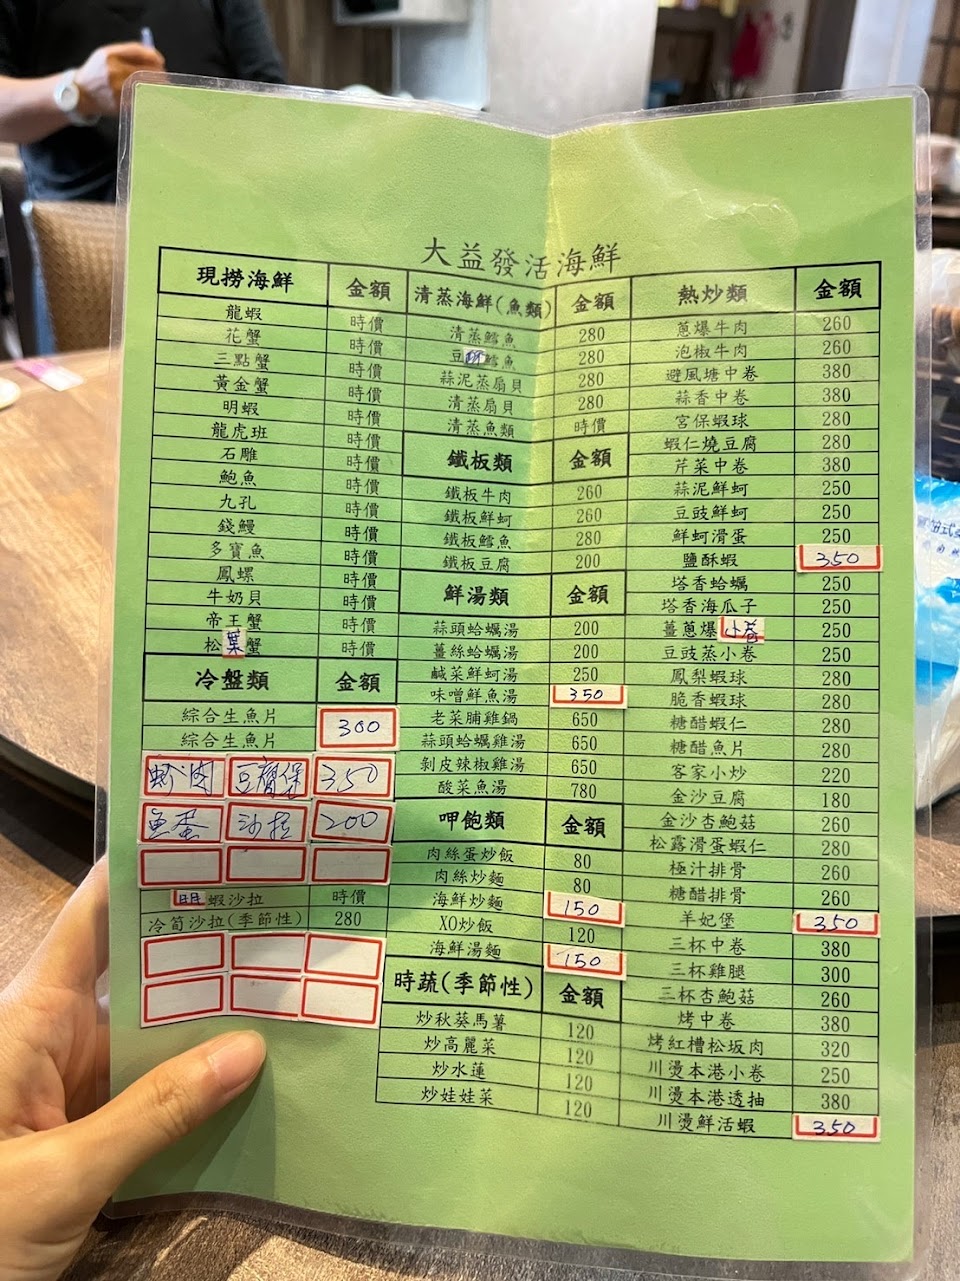 大益發活海鮮
現撈海鮮 金額
龍蝦 時價
花蟹 時價
三點蟹 時價
黃金蟹 時價
明蝦 時價
龍虎班 時價
石雕 時價
鮑魚 時價
九孔 時價
錢鰻 時價
多寶魚 時價
鳳螺 時價
牛奶貝 時價
帝王蟹 時價
松葉蟹 時價
冷盤類 金額
綜合生魚片 300
綜合生魚片
蚵肉 豆腐保 350
魚蛋 沙拉 200
明蝦沙拉 時價
冷筍沙拉(季節性) 280
清蒸海鮮(魚類) 金額
清蒸鱈魚 280
豆酥鱈魚 280
蒜泥蒸扇貝 280
清蒸扇貝 280
清蒸魚類 時價
鐵板類 金額
鐵板牛肉 260
鐵板鮮蚵 260
鐵板鱈魚 280
鐵板豆腐 200
鮮湯類 金額
蒜頭蛤蠣湯 200
薑絲蛤蠣湯 200
鹹菜鮮蚵湯 250
味噌鮮魚湯 350
老菜脯雞鍋 650
蒜頭蛤蠣雞湯 650
剝皮辣椒雞湯 650
酸菜魚湯 780
呷飽類 金額
肉絲蛋炒飯 80
肉絲炒麵 80
海鮮炒麵 150
XO炒飯 120
海鮮湯麵 150
時蔬(季節性) 金額
炒秋葵馬薯 120
炒高麗菜 120
炒水蓮 120
炒娃娃菜 120
熱炒類 金額
蔥爆牛肉 260
泡椒牛肉 260
避風塘中卷 380
蒜香中卷 380
宮保蝦球 280
蝦仁燒豆腐 280
芹菜中卷 380
蒜泥鮮蚵 250
豆豉鮮蚵 250
鮮蚵滑蛋 250
鹽酥蝦 350
塔香蛤蠣 250
塔香海瓜子 250
薑蔥爆小卷 250
豆豉蒸小卷 250
鳳梨蝦球 280
脆香蝦球 280
糖醋蝦仁 280
糖醋魚片 280
客家小炒 220
金沙豆腐 180
金沙杏鮑菇 260
松露滑蛋蝦仁 280
極汁排骨 260
糖醋排骨 260
羊妃堡 350
三杯中卷 380
三杯雞腿 300
三杯杏鮑菇 260
烤中卷 380
烤紅槽松坂肉 320
川燙本港小卷 250
川燙本港透抽 380
川燙鮮活蝦 350